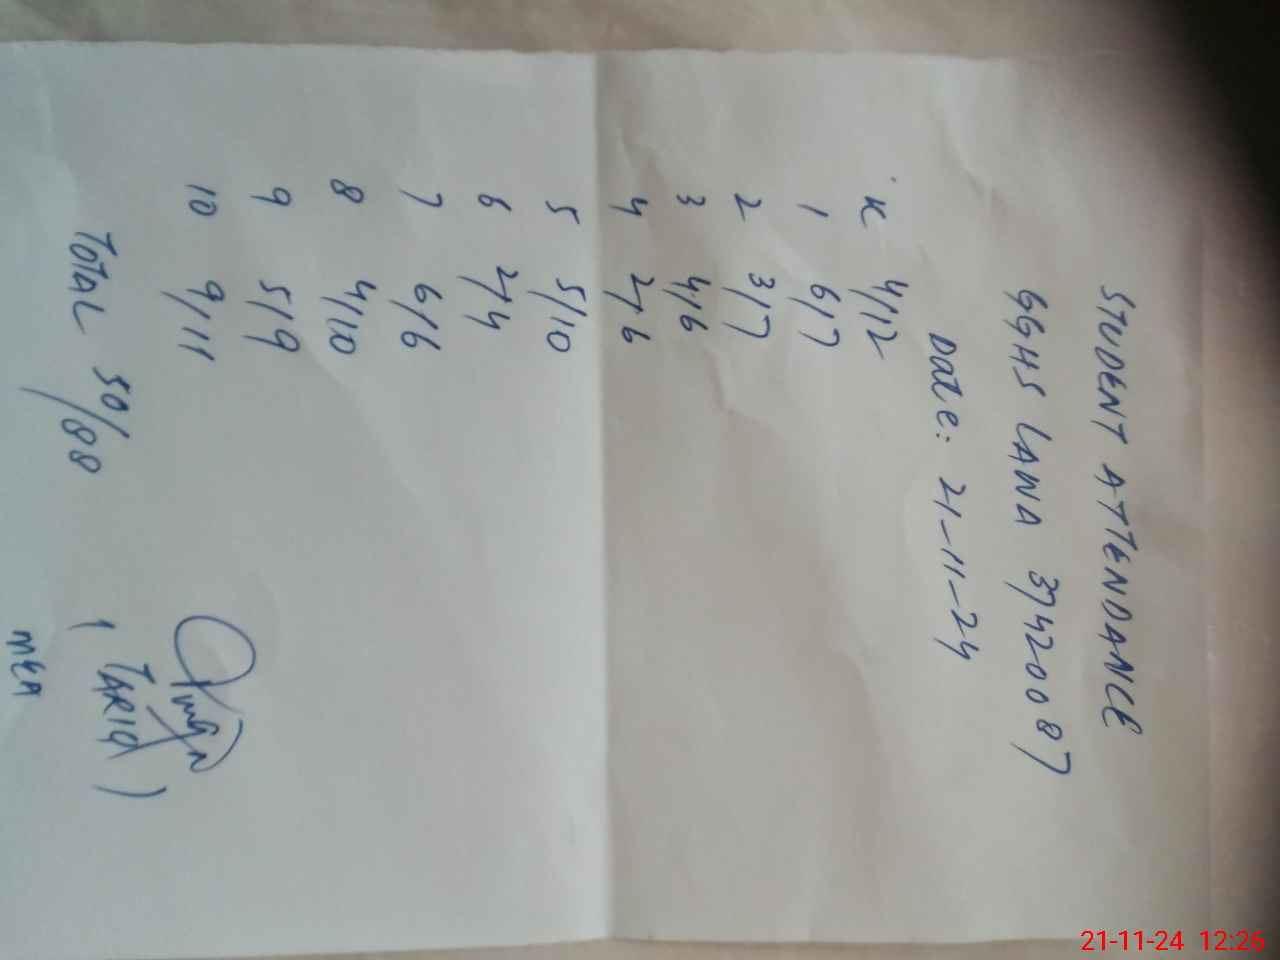 STUDENT ATTENDANCE
GGHS LAWA 37420087
Date: 21-11-24
K 4/12
1 6/7
2 3/7
3 4/6
4 2/6
5 5/10
6 2/4
7 6/6
8 4/10
9 5/9
10 9/11
TOTAL 50/88
( TARIQ )
MEA
21-11-24 12:26